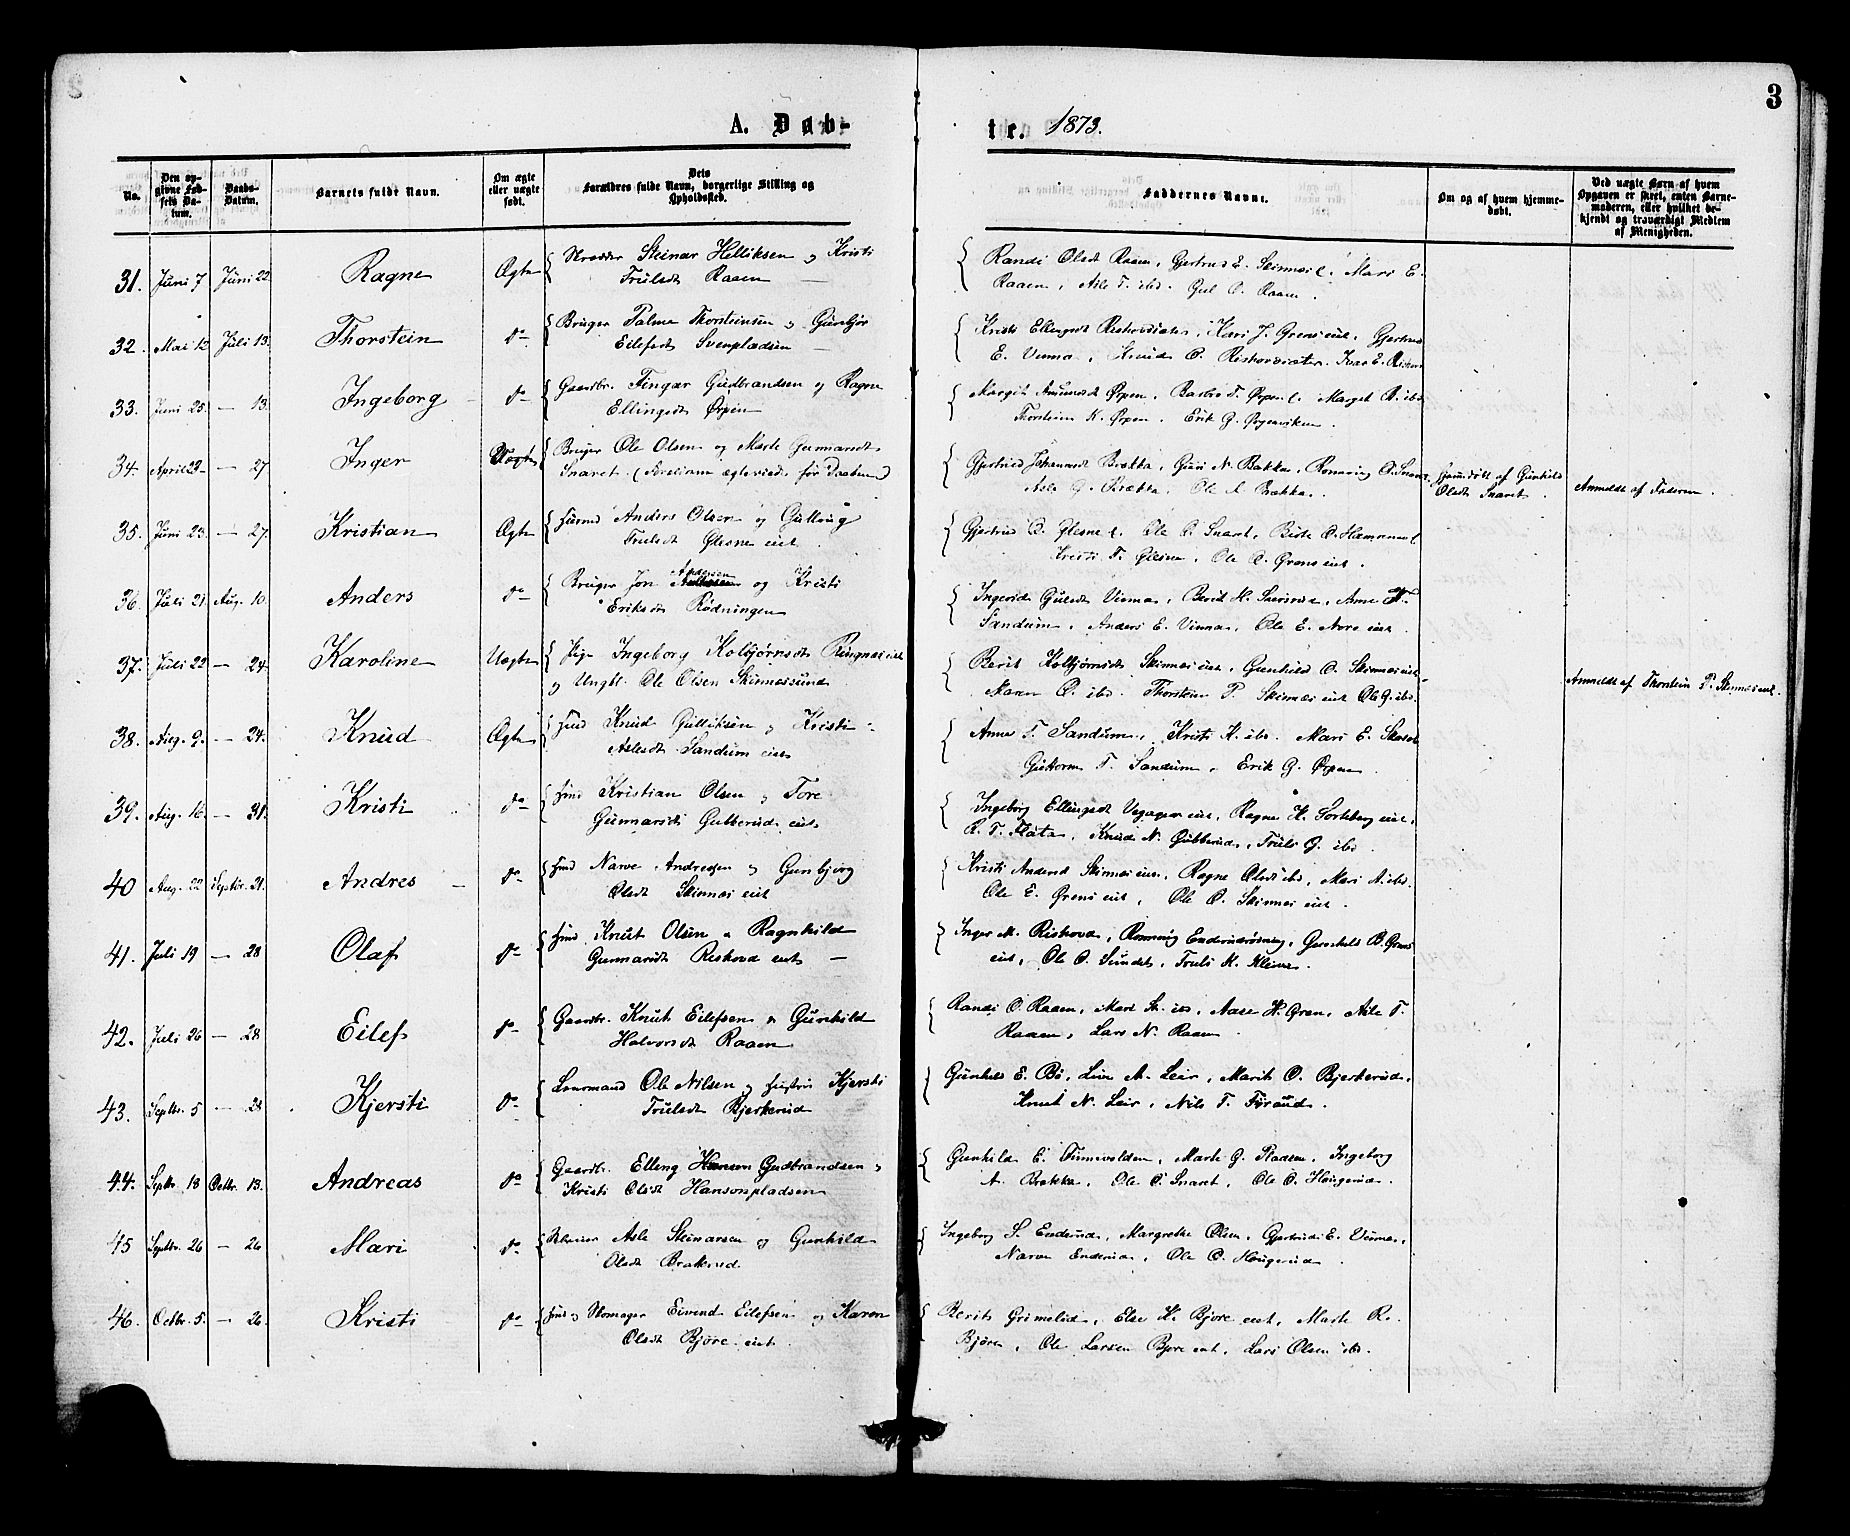 3
A. Døb-
te. 1873.
No.
Den opgivne Fødsels Datum.
Daabs-Datum.
Barnets fulde Navn.
Om ægte eller uægte født.
Dets Forældres fulde Navn, borgerlige Stilling og Opholdssted.
Faddernes Navne.
Om og af hvem hjemmedøbt.
Ved uægte Børn af hvem Opgaven er skeet, enten Barnemoderen, eller hvilket bekjendt og troværdigt Medlem af Menigheden.
31. Juni 7 Juni 22 Ragne Ægte Skrædder Steinar Helliksen og Kristi
Trulsdt Raaen
Randi Olsdt Raaen, Gjertrud E. Skinnes, Mari E.
Raaen, Asle T. ibd. Gul O. Raaen.
32. Mai 12 Juli 13. Thorstein do Bruger Palme Thorsteinsen og Gunbjør
Eilefsdt Svenpladsen
Kristi Ellingsdt Ristvedsæter, Kari J. Grens eiet, Gjertrud
E. Vinna, Knud O. Ristvedsæter, Ivar E.
33. Juni 25. — 13. Ingeborg do Gaardbr. Fingar Gudbrandsen og Ragne
Ellingsdt Ørpen
Margit Amundsdt Ørpen, Barbro T. Ørpen, Margit A. ibd.
Thorstein K. Ørpen, Erik G. Ørgenviken.
34. April 22 — 27 Inger Uægte Bruger Ole Olsen og Marte Gunnarsdt
Snaret. (Foreldrene ægteviede før Daaben)
Gjertrud Johannesdt Brekka, Guri N. Bakka, Ronnaug O. Snaret,
Asle G. Brækka, Ole A. Brækka.
Hjemmedøbt af Gunhild
Olsdt Snaret.
Anmeldt af Faderen.
35. Juni 23. — 27. Kristian Ægte Husmd Anders Olsen og Gullaug
Trulsdt Glesne eiet
Gjertrud O. Glesne, Ole O. Snaret, Birte O. Hammeren
Kristi T. Glesne, Ole O. Grens eiet.
36. Juli 21. Aug. 10. Anders do Bruger Jon Andersen og Kristi
Eriksdt Rødningen
Ingerid Gulsdt Vinna, Berit H. , Anne K.
Sandum, Anders E. Vinna, Ole E. Nore eiet.
37. Juli 22 — 24. Karoline Uægte Pige Ingeborg Kolbjørnsdt Ringnes eiet
og Ungkl. Ole Olsen Skinnessund
Berit Kolbjørnsdt Skinnes eiet, Gunhild O. Skinnes eiet
Maren O. ibd. Thorstein P. Skinnes eiet Ole G. ibd.
Anmeldt af Thorstein P. Skinnes eiet.
38. Aug. 9. — 24. Knud Ægte Husmd Knud Gulliksen og Kristi
Aslesdt Sandum eiet
Anne T. Sandum, Kristi K. ibd. Mari E.
Guttorm T. Sandum, Erik G. Ørpen.
39. Aug. 16. — 31. Kristi do Husmd Kristian Olsen og Tore
Gunnarsdt Gubberud eiet
Ingeborg Ellingsdt eiet, Ragne H. Sorteberg eiet,
R. T. Flata, Knud N. Gubberud, Truls G. ibd.
40 Aug. 22 Septbr. 21. Andres do Husmd Narve Andresen og Gunbjørg
Olsdt Skinnes eiet
Kristi Andersd Skinnes eiet, Ragne Olsdt ibd., Mari A. ibd.
Ole E. Grens eiet, Ole O. Skinnes eiet.
41. Juli 19 — 28 Olaf do Husmd Knut Olsen & Ragnhild
Gunnarsdt Ristvod eiet —
Inger M. Ristvod, Ronnaug , Gunhild B. Grens
eiet, Ole O. Sundet, Truls K. Kleven.
42. Juli 26 — 28 Eilef do Gaardbr. Knut Eilefsen & Gunhild
Halvorsdt Raaen
Randi O. Raaen, Mari St. ibd, Aase H. Gren, Asle T.
Raaen, Lars N. Raaen.
43. Septbr. 5 — 28 Kjersti do Lensmand Ole Nilsen og Hustru Kjersti
Trulsdt Bjerkerud
Gunhild E. Bø, Live A. Leir, Marit O. Bjerkerud,
Knut N. Leir, Nils T. Fyraud.
44. Septbr. 18 Octbr. 13. Andreas do Gaardbr. Elling Gudbrandsen og
Kristi Olsdt Hansonpladsen
Gunhild E. , Marte G. Pladsen, Ingeborg
A. Brekke, Ole O. Snaret, Ole O. Haugerud.
45 Septbr. 26 — 26 Mari do Asle Steinarsen og Gunhild
Olsdt Brekerud
Ingeborg S. Enderud, Margrethe Olsen, Gjertrud E. Vinna,
Narve Enderud, Ole O. Haugerud
46. Octbr. 5. — 26. Kristi do Husmd og Skomager Eivend Eilefsen og Karen
Olsdt Bjøre eiet.
Berit Grimelid, Else K. Bjøre eiet, Marte R.
Bjøre, Ole Larsen Bjøre eiet, Lars Olsen ibd.